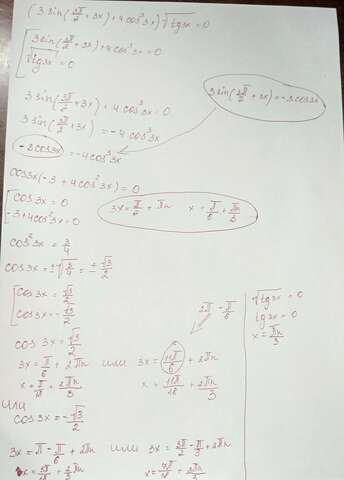 (3 sin(3π/2 + 3x) + 4cos³3x)√tg3x = 0
[ 3 sin(3π/2 + 3x) + 4cos³3x = 0
√tg3x = 0
3 sin(3π/2 + 3x) + 4cos³3x = 0
3 sin(3π/2 + 3x) = -3cos3x
3 sin(3π/2 + 3x) = -4cos³3x
-3cos3x = -4cos³3x
cos3x(-3 + 4cos²3x) = 0
[ cos3x = 0
-3 + 4cos²3x = 0
3x = π/2 + πn x = π/6 + πn/3
cos²3x = 3/4
cos3x = ±√3/4 = ±√3/2
[ cos3x = √3/2
cos3x = -√3/2
2π - π/6
cos3x = √3/2
3x = π/6 + 2πn или 3x = 11π/6 + 2πn
x = π/18 + 2πn/3 x = 11π/18 + 2πn/3
или
cos3x = -√3/2
3x = π - π/6 + 2πn или 3x = 3π/2 - π/3 + 2πn
x = 5π/18 + 2πn/3 x = 7π/18 + 2πn/3
√tg3x = 0
tg3x = 0
x = πn/3